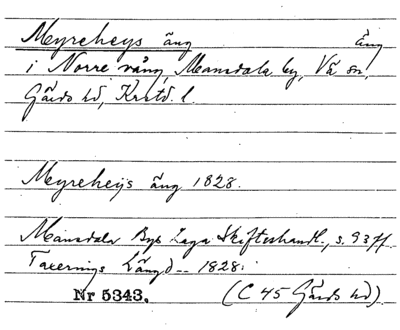 Meyreheys äng Äng
i Norre vång, Mansdala by, Vä sn,
Gärds hd, Krstd. l.
Meyreheijs äng 1828.
Mansdala Bys Laga Skifteshandl., s. 93 ff
Taxerings Längd -- 1828.
Nr 5343. (C 45 Gärds hd).